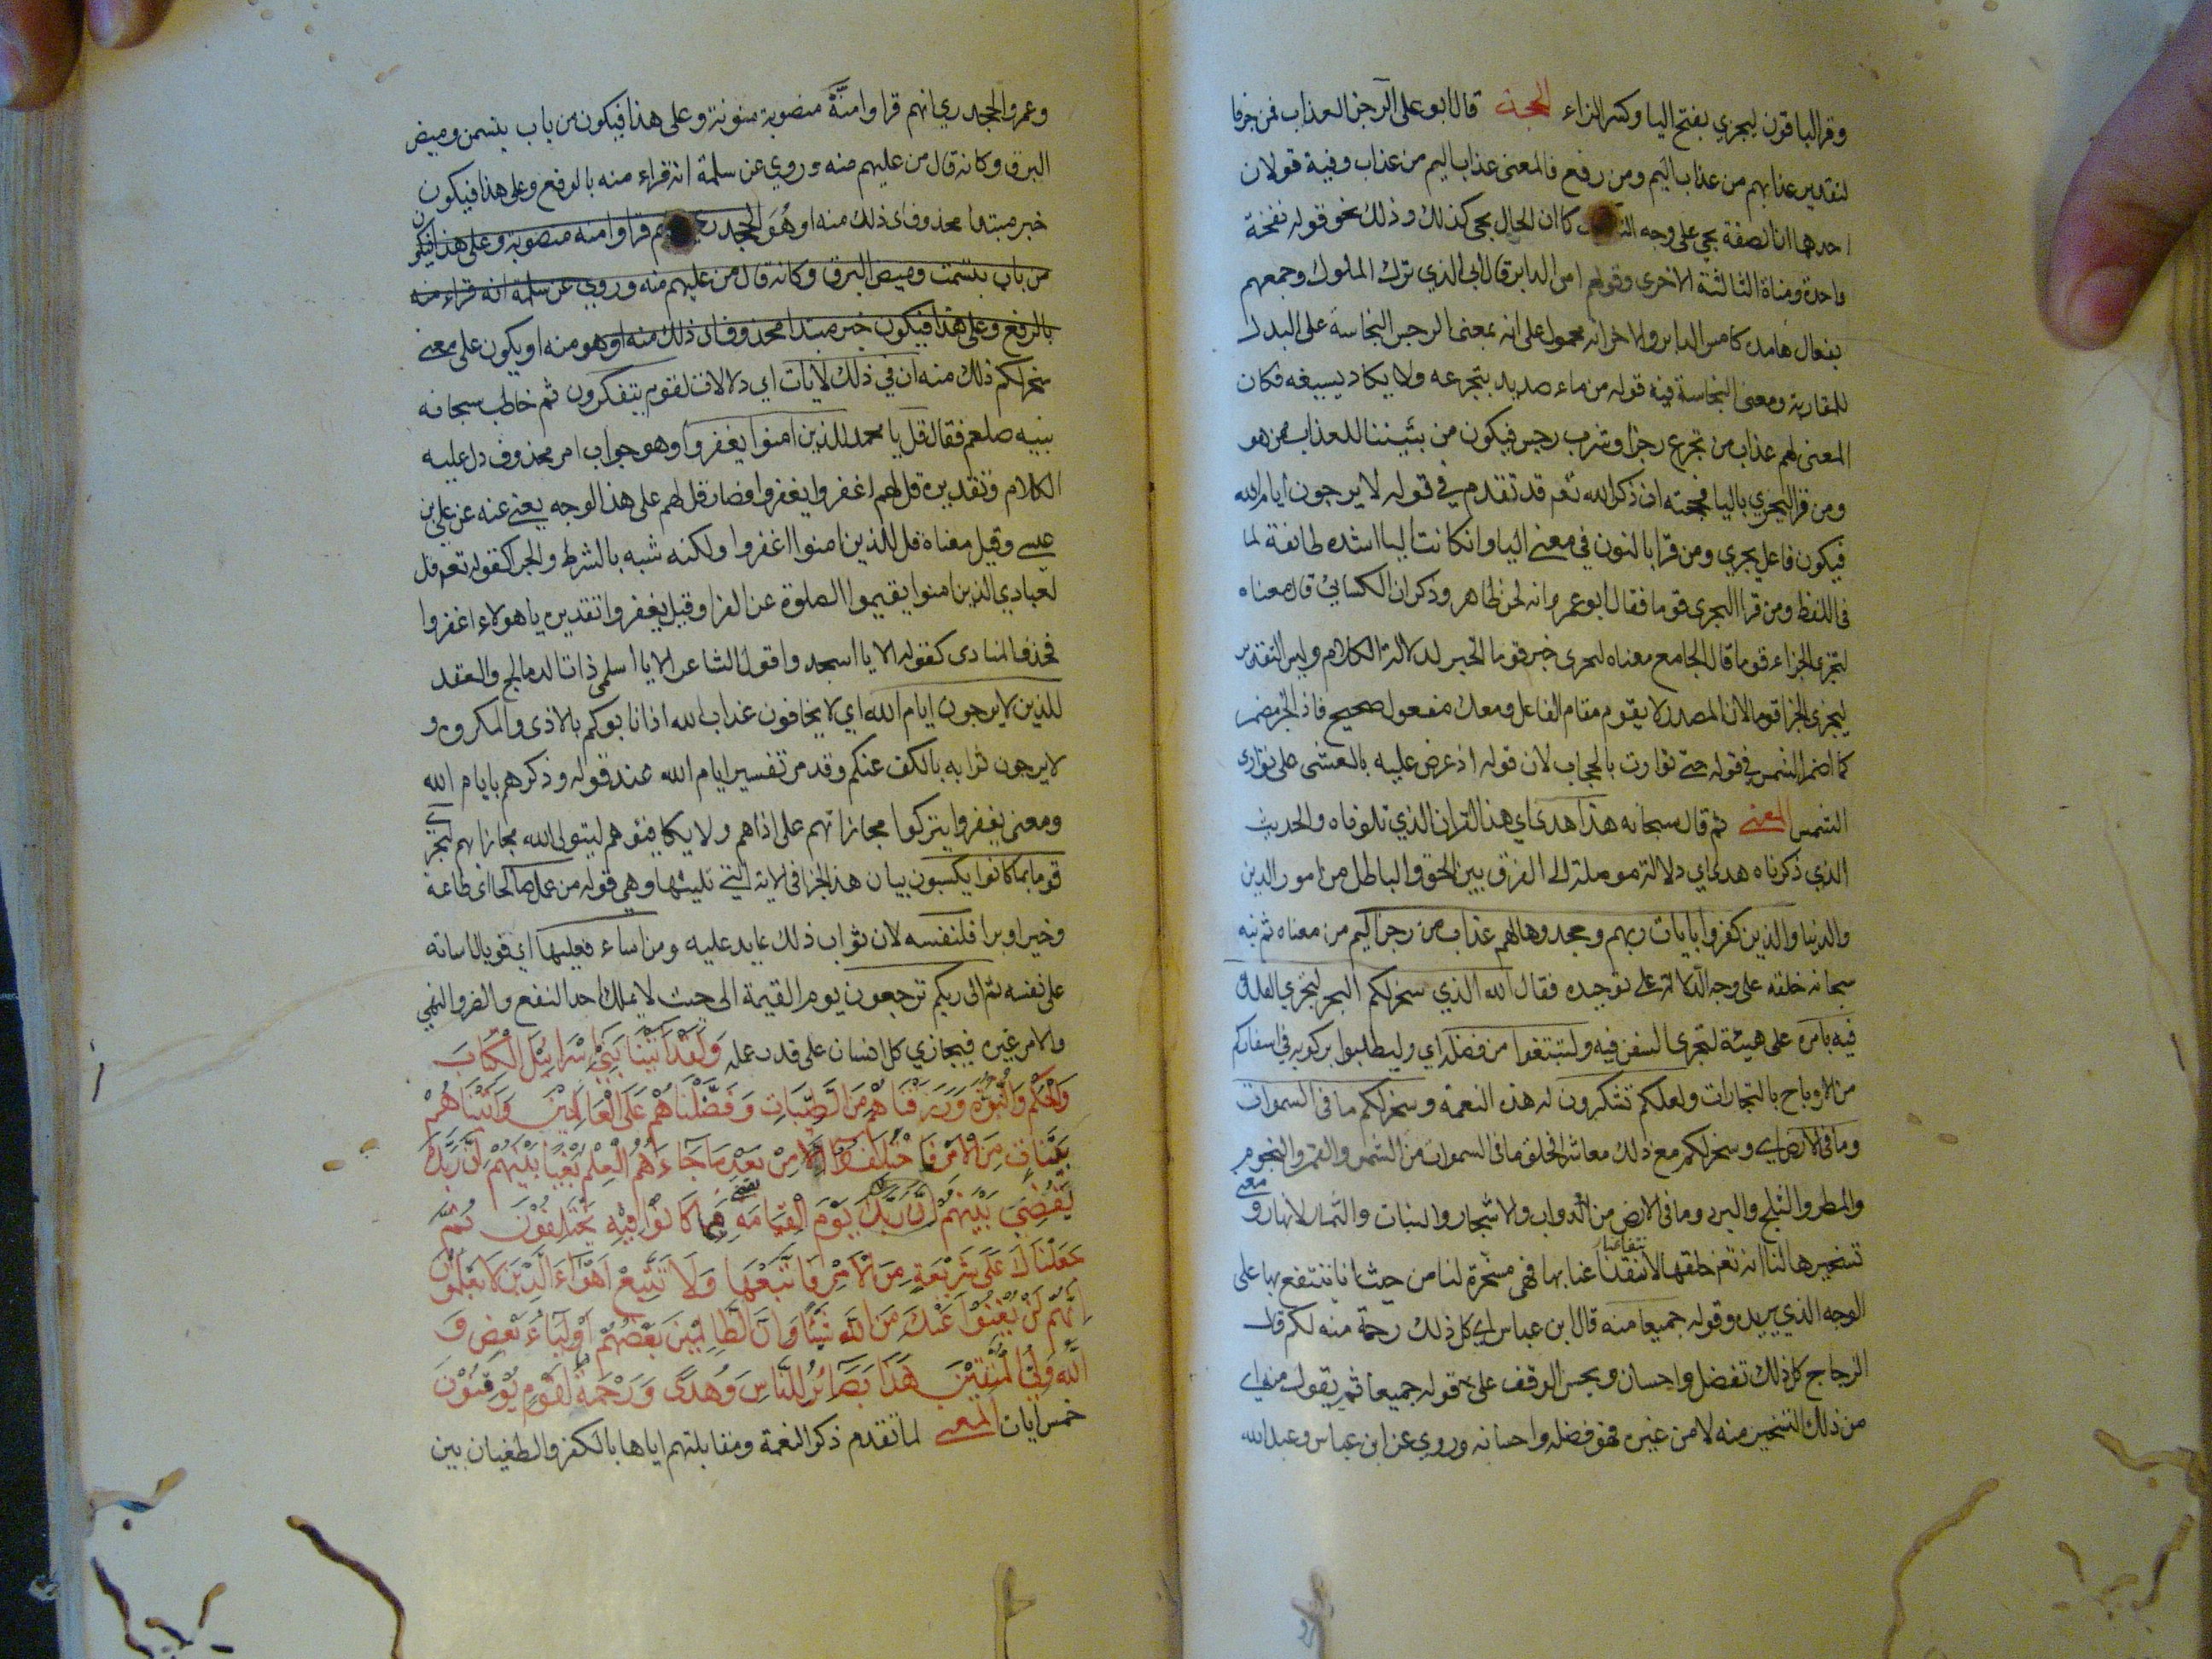 وقرا الباقون ليجزي بفتح اليا وكسر الزاء الحجة قال ابو على الرجز العذاب فمن جرفا
لتقدير عذابهم من عذاب اليم ومن رفع فالمعنى عذاب اليم من عذاب وفيه قولان
احدهما ان الصفة يجي على وجه كما ان الحال يجى كذلك وذلك نحو قوله نفخة
واحدة ومناة الثالثة الاخرى وقولهم امس الدابر قال ابى الذي ترك الملوك وجمعهم
بفعال هامد كامس الدابر والاخر انه محمول على انه بمعنى الرجس النجاسة على البدل
للمقاربة ومعنى النجاسة فيه قوله من ماء صديد يتجرعه ولا يكاد يسيغه فكان
المعنى لهم عذاب من تجرع رجز او شرب رجس فيكون من تبيننا للعذاب مم هو
ومن قرا ليجزي باليا فحجته ان ذكر الله تعم قد تقدم في قوله لا يرجون ايام الله
فيكون فاعل يجزي ومن قرا بالنون في معنى اليا وان كانت اليا اشده طائفة لما
فى اللفظ ومن قرا ليجزى قوما فقال ابو عمرو انه لحن ظاهر وذكر ان الكسايئ قال معناه
ليجزى الجزاء قوما قال الجامع معناه ليجزى خير قوما الخير لدلالة الكلام وليس التقدير
ليجزى الجزا قوما لان المصدر لا يقوم مقام الفاعل ومعك مفعول صحيح فاذا الخير مضمر
كما اضمر الشمس في قوله حتى توارت بالحجاب لان قوله اذ عرض عليه بالعشى على توارى
الشمس المعنى ثم قال سبحانه هذا هدى اي هذا القران الذي تلوناه والحديث
الذي ذكرناه هدى اي دلالة موصلة الى الفرق بين الحق والباطل من امور الدين
والدنيا والذين كفروا بايات ربهم وجحدوها لهم عذاب من رجز اليم مر معناه ثم نبه
سبحانه خلقه على وجه الدلالة على توحيده فقال الله الذي سخر لكم البحر لتجري الفلك
فيه بامره على هيئة لتجرى السفن فيه ولتبتغوا من فضله اي وليطلبوا بركوبه في اسفاركم
من الارباح بالتجارات ولعلكم تشكرون له هذه النعمة وسخر لكم ما فى السموات
وما فى الارض اي وسخر لكم مع ذلك معاشر الخلق ما فى السموات من الشمس والقمر والنجوم
والمطر والثلج والبرد وما فى الارض من الدواب والاشجار والنبات والثمار والانهار و معنى
تسخيرها لنا انه تعم خلقها لانتفاعنا بها فهى مسخرة لنا من حيث انا ننتفع بها على
الوجه الذي يريده وقوله جميعا منه قال ابن عباس اى كل ذلك رحمة منه لكم قال
الزجاج كل ذلك تفضل واحسان ويحسن الوقف على قوله جميعا ثم يقول منه اى
من ذلك التسخير منه لا من غيره فهو فضله واحسانه وروي عن ابن عباس وعبد الله
وعمرو الجحدري انهم قراوا منَّةً منصوبة منونة وعلى هذا فيكون من باب وميض
البرق وكانه قال من عليهم منه وروي عن سلمة انه قراء منه بالرفع وعلى هذا فيكون
خبر مبتدا محذوف اى ذلك منه او هو الجحدري انهم قراوا منه منصوبة وعلى هذا فيكون
من باب وميض البرق وكانه قال من عليهم منه وروي عن سلمة انه قراء منه
بالرفع وعلى هذا فيكون خبر مبتدا محذوف اى ذلك منه او هو منه او يكون على معنى
سخر لكم ذلك منه ان في ذلك لايات اي دلالات لقوم يتفكرون ثم خاطب سبحانه
نبيه صلعم فقال قل يا محمد للذين امنوا يغفروا وهو جواب امر محذوف دل عليه
الكلام وتقديره قل لهم اغفروا يغفروا فصار قل لهم على هذا الوجه يعنى عنه عن علي بن
عيسى وقيل معناه قل للذين امنوا اغفروا ولكنه شبه بالشرط والجزا كقوله تعم قل
لعبادي الذين امنوا يقيموا الصلوة عن الفرا وقيل يغفروا تقديره يا هولاء اغفروا
فحذف المنادى كقوله الا يا اسجدوا وقول الشاعر الا يا اسلمى ذات الدمالج والعقد
للذين لا يرجون ايام الله اي لا يخافون عذاب الله اذا نابوكم بالاذى والمكروه و
لا يرجون ثوابه بالكف عنكم وقد مر تفسير ايام الله عند قوله وذكرهم بايام الله
ومعنى يغفروا يتركوا مجازاتهم على اذاهم ولا يكافيوهم ليتولى الله مجازاتهم ليجزى
قوما بما كانوا يكسبون بيان هذا الجزا فى الاية التي تليها وهى قوله من عمل صالحا اى طاعة
وخيرا وبرا فلنفسه لان ثواب ذلك عايد عليه ومن اساء فعليها اي فوبال اساته
على نفسه ثم الى ربكم ترجعون يوم القيمة الى حيث لا يملك احد النفع والضر والنهي
والامر غيره فيجازي كل انسان على قدر عمله وَلَقَدْ آتَيْنَا بَنِي اِسْرَائِيْلَ الْكِتَابَ
وَالْحُكْمَ وَالنُّبُوَّةَ وَرَزَقْنَاهُمْ مِنَ الطَّيِّبَاتِ وَفَضَّلْنَاهُمْ عَلَى الْعَالَمِيْنَ وَآتَيْنَاهُمْ
بَيِّنَاتٍ مِنَ الْاَمْرِ فَمَا اخْتَلَفُوْا اِلَّا مِنْ بَعْدِ مَا جَاءَهُمُ الْعِلْمُ بَغْيًا بَيْنَهُمْ اِنَّ رَبَّكَ
يَقْضِي بَيْنَهُمْ اِنَّ رَبَّكَ يَوْمَ الْقِيَامَةِ فِيمَا كَانُوْا فِيْهِ يَخْتَلِفُوْنَ ثُمَّ
جَعَلْنَاكَ عَلَى شَرِيْعَةٍ مِنَ الْاَمْرِ فَاتَّبِعْهَا وَلَا تَتَّبِعْ اَهْوَاءَ الَّذِيْنَ لَا يَعْلَمُوْنَ
اِنَّهُمْ لَنْ يُغْنُوْا عَنْكَ مِنَ اللّٰهِ شَيْئًا وَاِنَّ الظَّالِمِيْنَ بَعْضُهُمْ اَوْلِيَاءُ بَعْضٍ وَ
اللّٰهُ وَلِيُّ الْمُتَّقِيْنَ هَذَا بَصَائِرُ لِلنَّاسِ وَهُدًى وَرَحْمَةٌ لِقَوْمٍ يُوْقِنُوْنَ
خمس ايات المعنى لما تقدم ذكر النعمة ومقابلتهم اياها بالكفر والطغيان بين